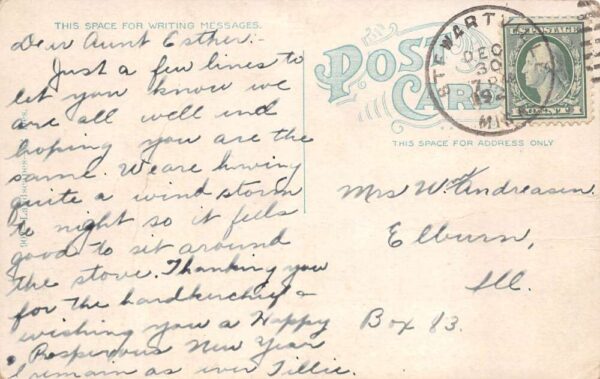 THIS SPACE FOR WRITING MESSAGES.
Dear Aunt Esther:-
Just a few lines to
let you know we
are all well and
hoping you are the
same. We are having
quite a wind storm
to night so it feels
good to sit around
the stove. Thanking you
for the handkerchief &
wishing you a Happy
& Prosperous New Year
I remain as ever Tillie.
POST
CARD
THIS SPACE FOR ADDRESS ONLY
STEWARTV
DEC
30
MIN
U.S. POSTAGE
1 CENT 1
Mrs Wm Andreasen.
Elburn,
Ill.
Box 83.